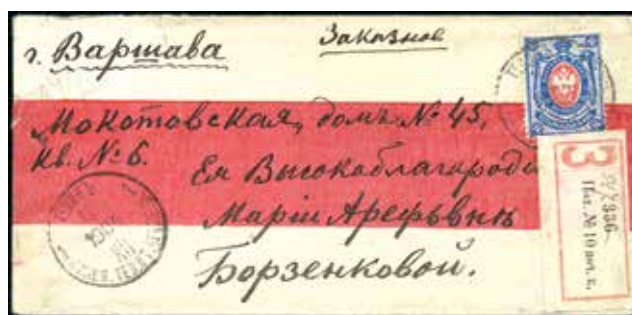 Заказное
г. Варшава
Мокотовская, домъ № 45,
кв. № 6.
Ея Высокоблагороди
Маріи Арефьвнѣ
Борзенковой.
З
№ 936
Пол. № 10 поч. к.